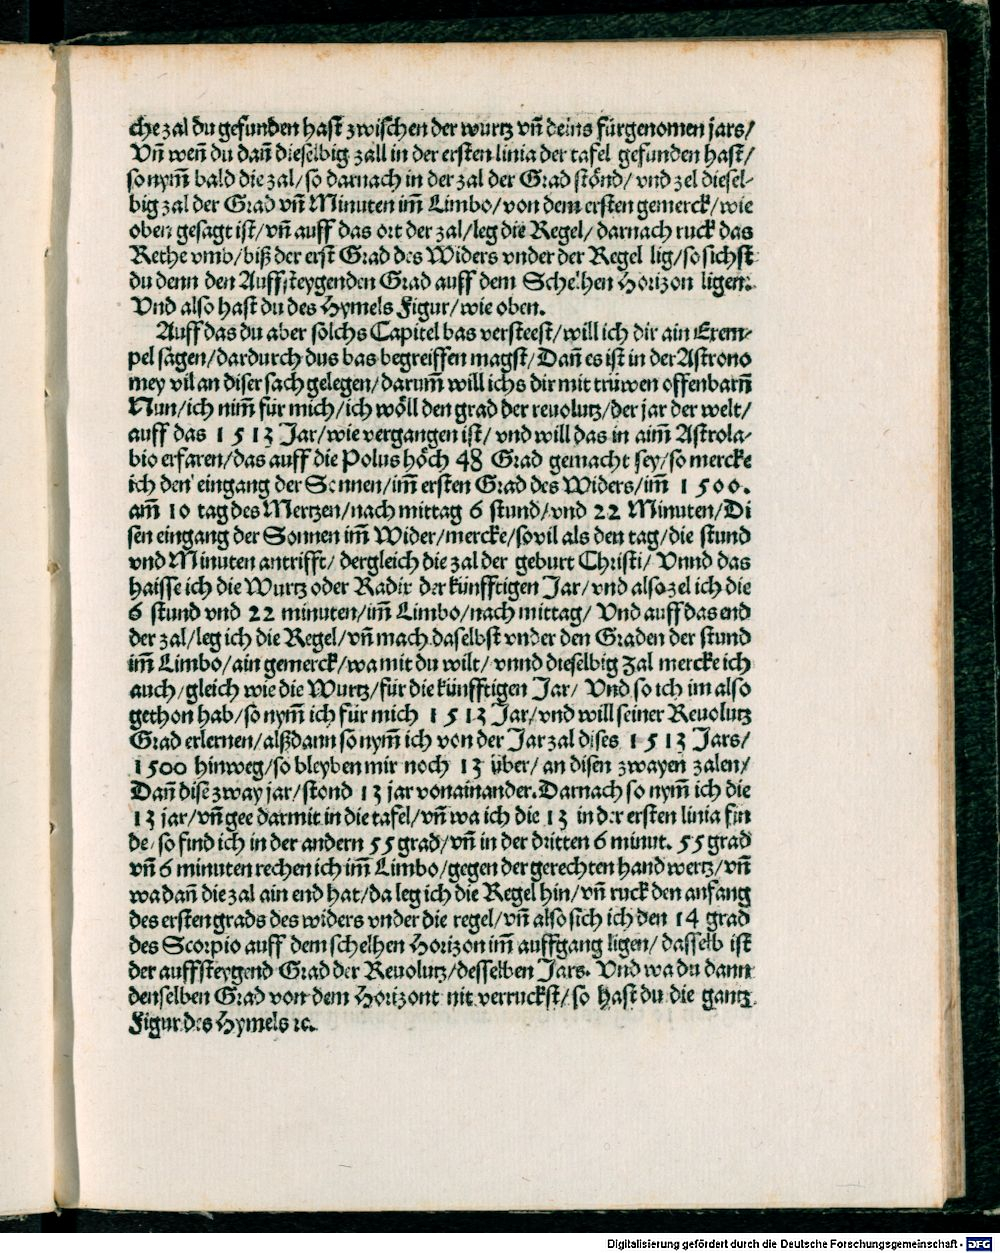 che zal du gefunden hast zwischen der wurtz vñ deins fürgenomen jars/
Vñ weñ du dañ dieselbig zall in der ersten linia der tafel gefunden hast/
so nym̃ bald die zal/so darnach in der zal der Grad stönd/vnd zel diesel-
big zal der Grad vñ Minuten im̃ Limbo/von dem ersten gemerck/wie
oben gesagt ist/vñ auff das ort der zal/leg die Regel/darnach ruck das
Rethe vmb/biß der erst Grad des Widers vnder der Regel lig/so sichst
du denn den Auffsteygenden Grad auff dem Schelhen Horizon ligen.
Vnd also hast du des Hymels Figur/wie oben.
Auff das du aber sölchs Capitel bas versteest/will ich dir ain Exem-
pel sagen/dardurch dus bas begreiffen magst/Dañ es ist in der Astrono
mey vil an diser sach gelegen/darum̃ will ichs dir mit trüwen offenbarñ
Nun/ich nim̃ für mich/ich wöll den grad der reuolutz/der jar der welt/
auff das 1513 Jar/wie vergangen ist/vnd will das in aim̃ Astrola-
bio erfaren/das auff die Polus höch 48 Grad gemacht sey/so mercke
ich den eingang der Sonnen/im̃ ersten Grad des Widers/im̃ 1500.
am̃ 10 tag des Mertzen/nach mittag 6 stund/vnd 22 Minuten/Di
sen eingang der Sonnen im̃ Wider/mercke/souil als den tag/die stund
vnd Minuten antrifft/dergleich die zal der geburt Christi/Vnnd das
haisse ich die Wurtz oder Radix der künfftigen Jar/vnd also zel ich die
6 stund vnd 22 minuten/im̃ Limbo/nach mittag/Vnd auff das end
der zal/leg ich die Regel/vñ mach daselbst vnder den Graden der stund
im̃ Limbo/ain gemerck/wa mit du wilt/vnnd dieselbig Zal mercke ich
auch/gleich wie die Wurtz/für die künfftigen Jar/Vnd so ich im also
gethon hab/so nym̃ ich für mich 1513 Jar/vnd will seiner Reuolutz
Grad erlernen/alßdann so nym̃ ich von der Jarzal dises 1513 Jars/
1500 hinweg/so bleyben mir noch 13 über/an disen zwayen zalen/
Dañ dise zway jar/stond 13 jar vonainander. Darnach so nym̃ ich die
13 jar/vñ gee darmit in die tafel/vñ wa ich die 13 in der ersten linia fin
de/so find ich in der andern 55 grad/vñ in der dritten 6 minut. 55 grad
vñ 6 minuten rechen ich im̃ Limbo/gegen der gerechten hand wertz/vñ
wa dañ die zal ain end hat/da leg ich die Regel hin/vñ ruck den anfang
des ersten grads des widers vnder die regel/vñ also sich ich den 14 grad
des Scorpio auff dem schelhen Horizon im̃ auffgang ligen/dasselb ist
der auffsteygend Grad der Reuolutz/desselben Jars. Vnd wa du dann
denselben Grad von dem Horizont nit verruckst/so hast du die gantz
Figur des Hymels ꝛc.
Digitalisierung gefördert durch die Deutsche Forschungsgemeinschaft - DFG